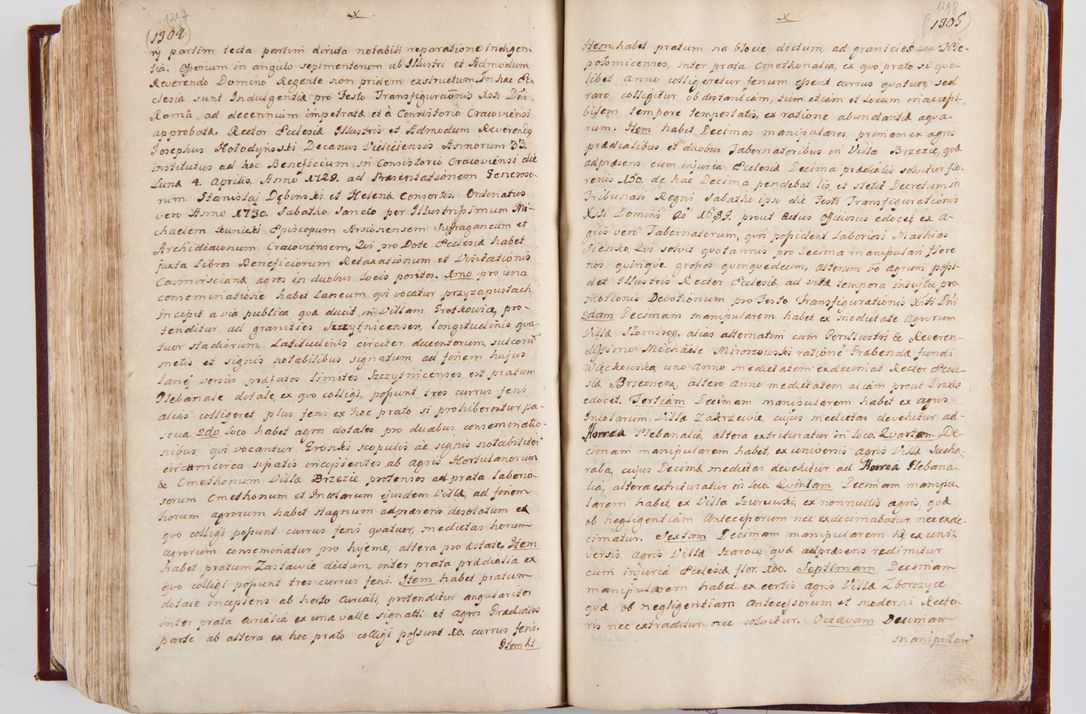 1297
(1304)
x
rÿ partim tecta partim diruta notabili reparatione indigen
tia. Ossorium in angulo septimentonem ab Illustri et Admodum
Reverendo Domino Regente non pridem exstructum In hac Ec
clesia sunt Indulgentiæ pro Festo Transfigurãonis Xsti Dni
Romæ ad decennium impetratæ et â Consistorio Cracoviensi
approbatæ. Rector Ecclesiæ Illustris et Admodum Reverendus
Josephus Hotodyński Decanus Vieliciensis Annorum 33.
institutus ad hoc Beneficium in Consistorio Cracoviensi die
Lunæ 4. Aprilis, Anno 1729. ad Præsentationem Generoso-
rum Stanislaj Dębinski et Helenæ Consortis. Ordinatus
vero Anno 1730. Sabatho Sancto per Illustrissimum Mi-
chaelem Kunicki Episcopum Arsinensem Sufraganeum et
Archidiaconum Cracoviensem, Qui pro Dote Ecclesiæ habet
juxta Libros Beneficiorum Retaxationum et Visitationis
Cazimirscianæ agros in duobus Locis positos. Imo pro una
conseminatione habet Laneum qui vocatur przyzapustach
incepit a via publica quæ ducit in Villam Grotkovia, pro-
tenditur ad granities Szczytnicenses, longitudinis qua-
tuor stadiorum, Latitudinis circiter ducentorum, sulcorũ
metis et signis notabilibus signatum, ad finem hujus
Lanej versus præfatos limites Szczytnicenses est pratum
Plebanale dotale, ex quo colligi possunt tres currus feni
alias colligeret plus feni ex hoc prato si prohiberentur pa-
scua 2do loco habet agros dotales pro duabus conseminatio-
nibus qui vocantur Gronski scopulis ac signis notabiliter
circumcirca sipatis incipientes ab agris Hortulanorum
& Cmethonum Villæ Brzezie protensos ad prata Laborio-
sorum Cmethonum et Incolarum ejusdem Villæ, ad finem
horum agrorum habet stagnum adpræsens desolatum ex
quo colligi possunt currus feni quatuor, medietas horum
agrorum conseminatur pro hyeme, altera pro æstate, Item
habet pratum Zastawie dictum, inter prata prædialia ex
quo colligi possunt tres currus feni. Item habet pratum
dotale incipiens ab horto Curiali, protenditur angulariter
inter prata Curialia ex una valle signatti et Agros Prædiales
parte ab altera ex hoc prato colligi possunt 10. currus feni.
Item ht
1298
(1305)
x
Item habet pratum na błocie dictum, ad granicies Nie-
polomicenses, inter prata Cmethonalia, ex quo prato si quo-
libet anno colligeretur fenum essent currus quatuor, sed
raro colligitur ob distantiam, tum etiam et Locum inaccepti-
bilem tempore tempestatis, ex ratione abundantiæ aqua-
rum. Item habet Decimas manipulares, primam ex agris
prædialibus et duobus Tabernatoribus in Villa Brzezie, quæ
adpræsens cum injuria Ecclesiæ Decima prædialis solvitur flo-
renis 150. de hac Decima pendebat lis, et stetit Decretum in
Tribunali Regni Sabatho ipso die Festi Transfigurationis
Xsti Domini Ao 1689. prout Actus Officiosus edocet ex a-
gris vero Tabernatorum, quos possident Laboriosi Mathias
Sienko Qui solvit quotannis pro Decima manipulari flore
nos quinque grossos quinquedecim, alterum vo agrum possi-
det Illustris Rector Ecclesiæ, ad vitæ tempora inscriptũ pro
motionis Devotionum pro Festo Transfigurationis Xsti Dni
2dam Decimam manipularem habet ex medietate Agrorum
Villæ Słomirog, alias alternatim cum Perillustri & Reveren-
dissimo Michaële Mirszowski ratione Præbendæ fundi
Wąckovska, uno anno medietatem exdecimat Rector Eccle-
siæ Brzeznens, altero anno medietatem aliam prout Praxis
edocet. Tertiam Decimam manipularem habet ex agris
Incolarum Villæ Zakrzewie cujus medietas devehitur ad
Horrea Plebanalia, altera extrituratur in loco. Quartam De
cimam manipularem habet, ex universis agris Villæ Sucho-
raba, cujus Decimæ medietas devehitur ad Horrea Plebana-
lia, altera extrituratur in loco. Quintam Decimam manipu-
larem habet ex Villa Sziorowski, ex nonnullis agris, quæ
ob negligentiam Antecessorum nec exdecimabatur, nec exde-
cimatur. Sextam Decimam manipularem ht, ex univ-
versis agris Villæ Szarow, quæ adpræsens redimitur
cum injuria Ecclesiæ flor. 100. Septimam Decimam
manipularem habet ex certis agris Villæ Zborczyce
quæ ob negligentiam Antecessorum et moderni Recto-
ris nec extraditur, nec solvitur. Octavam Decimam
manipularẽ